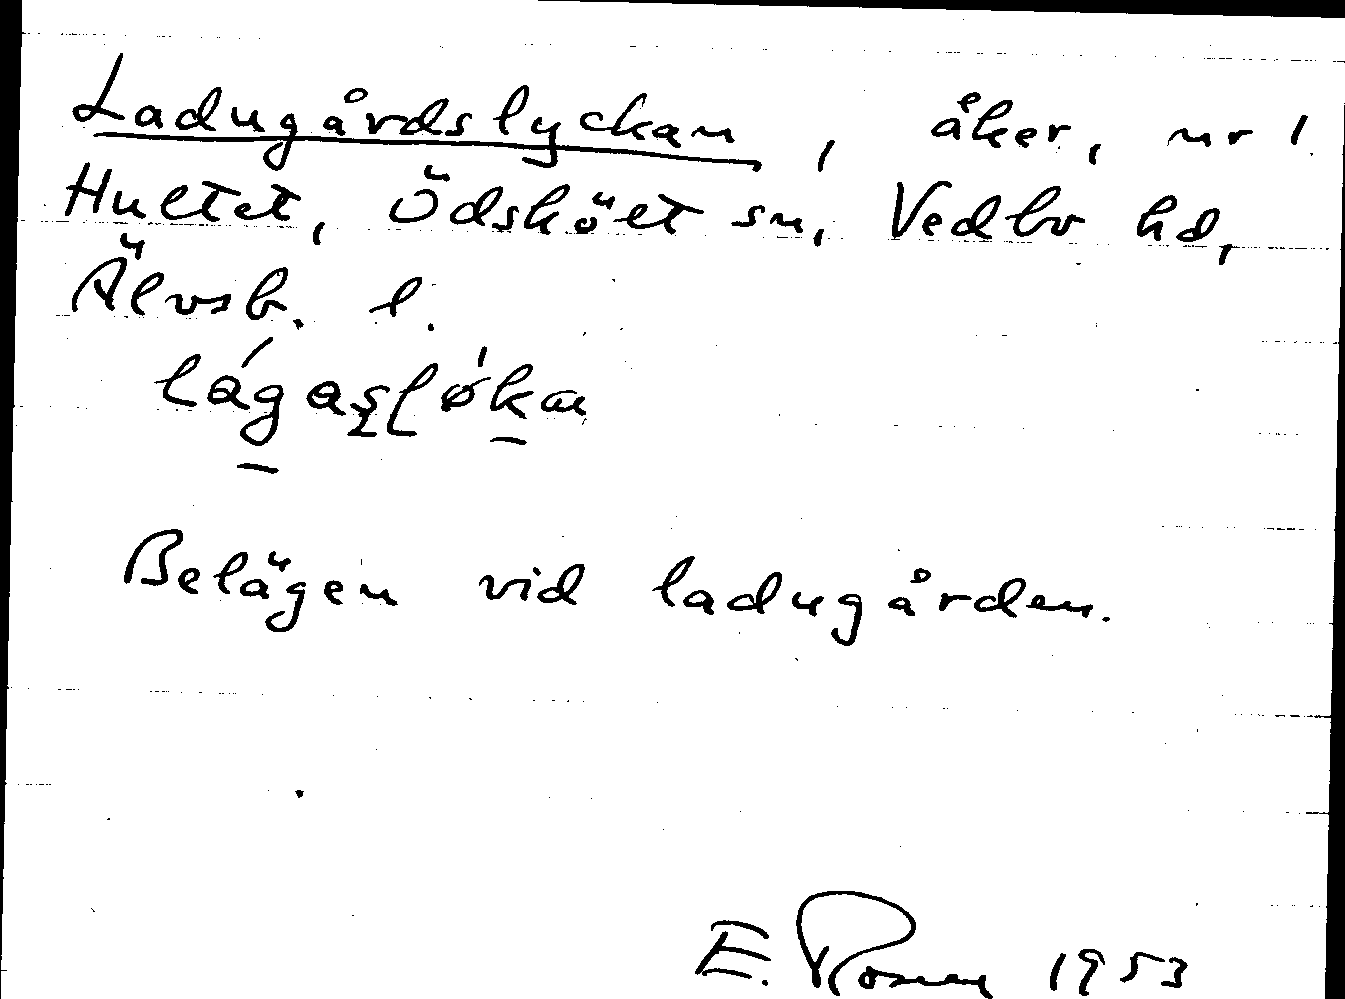 Ladugårdslyckan, åker, nr 1
Hultet, Ödsköet sn, Vedbo hd,
Älvsb. l.
lágaslǿka
Belägen vid ladugården.
E. Rosen 1953